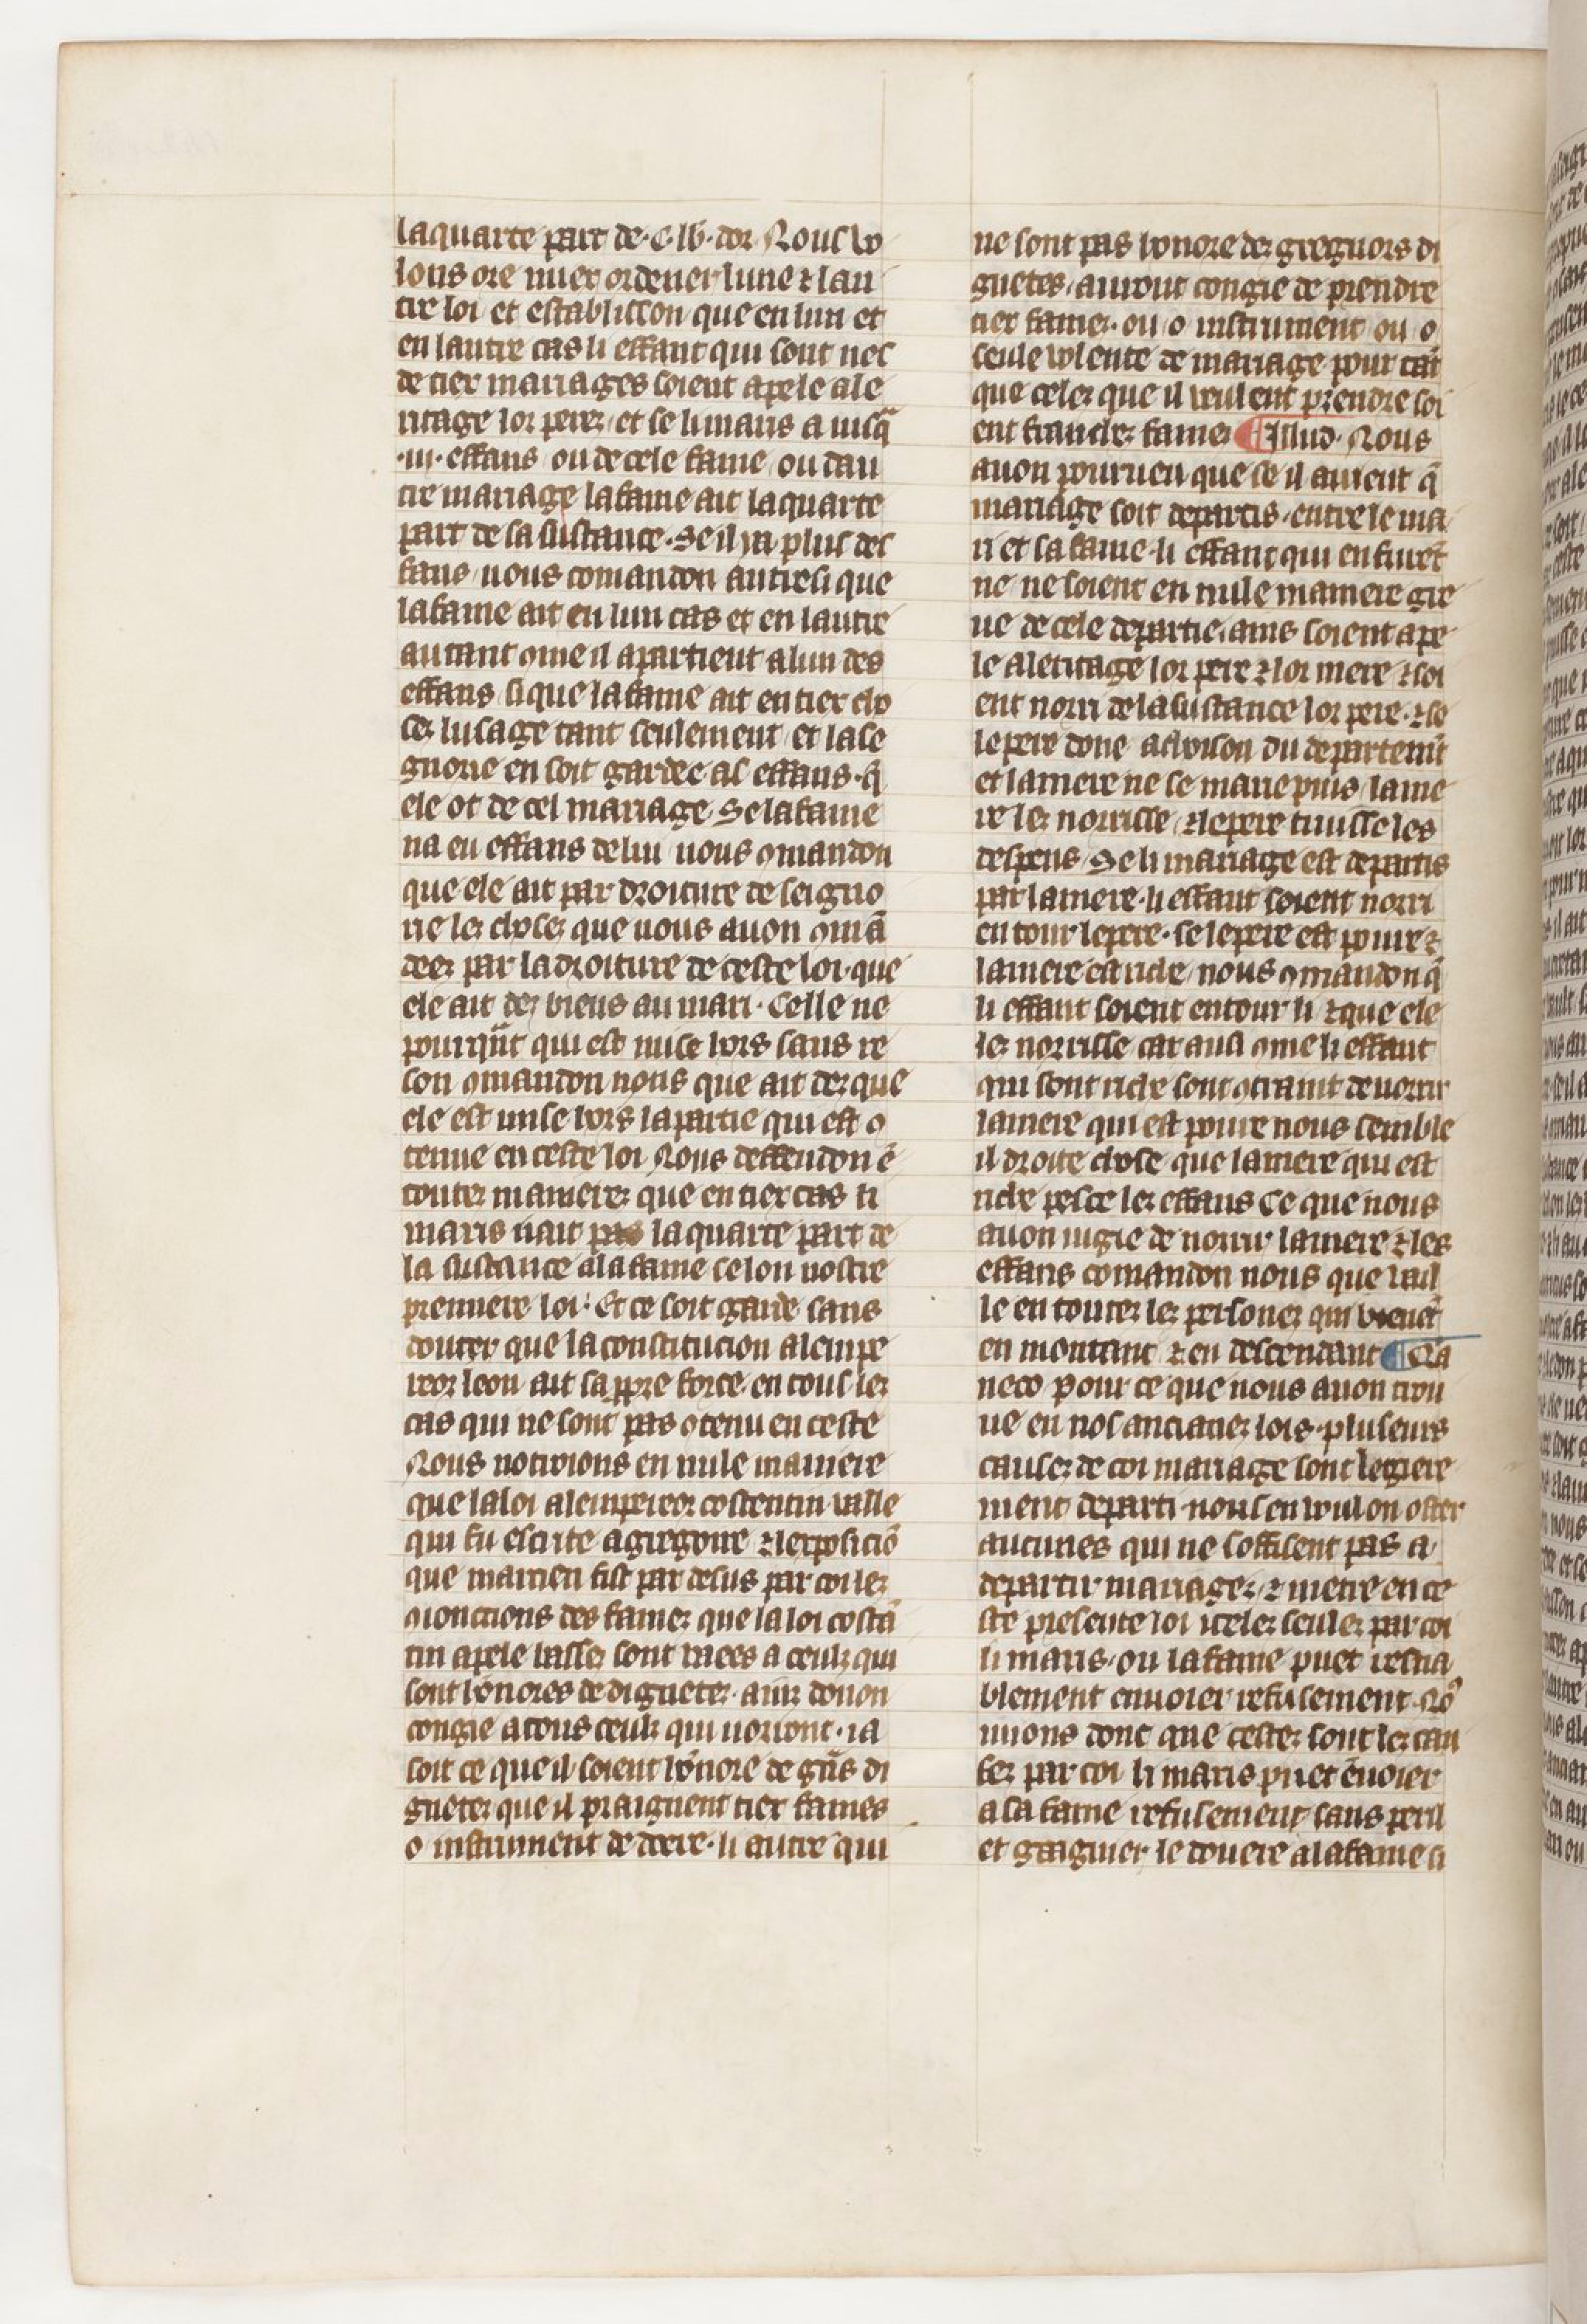 laquarte part de .c. lb. dor. Nous vo
lons ore miex ordener lune ⁊ lau
tre loi et establisson que en lun et
en lautre cas li effant qui sont nes
de tiex mariages soient apele a le
ritage lor perez et se li maris a iusqª
.iii. effans ou de cele fame ou dau
tre mariage la fame ait la quarte
part de sa sustance. Se il ia plus def
fans nous comandon autresi que
la fame ait en lun cas et en lautre
autant ꝯme il apartient a lun des
effans si que la fame ait en tiex cho
sez lusage tant seulement et la se
gnorie en soit gardee as effans. q̃
ele ot de cel mariage. Se la fame
na eu effans de lui nous ꝯmandon
que ele ait par droiture de seigno
rie lez chosez que nous auon ꝯmã
deez par la droiture de ceste loi. que
ele ait dez biens au mari. Celle ne
pourq̃nt qui est mise hors sans re
son ꝯmandon nous que ait dez que
ele est mise hors la partie qui est ꝯ
tenue en ceste loi. Nous deffendon ẽ
toutez manierez que en tiex cas li
maris nait pas la quarte part de
la sustance a la fame selon nostre
premiere loi. Et ce soit garde sans
douter que la constitucion a lempe
reor leon ait sa ꝓpre force en tous lez
cas qui ne sont pas ꝯtenu en ceste
Nous notroions en nule maniere
que la loi a lempereor costentin vaille
qui fu escrite a gregoire ⁊ lexposiciõ
que marcien fist par desus par coi lez
ꝯionctions des famez que la loi costã
tin apele bassez sont vaees a ceulz qui
sont hõnores de dignetez. ainz donon
congie a tous ceulz qui uorront. ia
soit ce que il soient hõnore de gñs di
gnetez que il praignent tiex fames
o instrument de doere. li autre qui
ne sont pas honore dez gregnors di
gnetes, auront congie de prendre
tiex famez. ou o instrument ou o
seule volente de mariage pour tãt
que celez que il veulent prendre soi
ent franchez famez ¶ Illud. Nous
auon pourueu que se il auient q̃
mariage soit departis entre le ma
ri et la fame li effant qui en furẽt
ne ne soient en nulle maniere gre
ue de cele departie, ains soient ape
le a leritage lor pere ⁊ lor mere ⁊ soi
ent norri de la sustance lor pere. ⁊ se
le pere done achoison du departemẽt
et la mere ne se marie puis la me
re lez norrisse, ⁊ le pere truisse les
despens. Se li mariage est departis
par la mere. li effant soient norri
entour le pere. se le pere est poure ⁊
la mere est riche nous ꝯmandon q̃
li effant soient entour li ⁊ que ele
lez norrisse car ausi ꝯme li effant
qui sont riche sont ꝯtraint de norrir
la mere qui est poure nous semble
il droite chose que la mere qui est
riche pesce lez effans Ce que nous
auon iugie de norrir la mere ⁊ les
effans comandon nous que vail
le en toutez lez personez qui vienẽt
en montant ⁊ en descendant ¶ Qa
neco pour ce que nous auon trou
ue en nos ancianez lois. pluseurs
causez de coi mariage sont legiere
ment departi nous en voulon oster
aucunes qui ne soffisent pas a
departir mariagez, ⁊ metre en ce
ste presente loi icelez seulez par coi
li maris, ou la fame puet resna
blement enuoier refusement. No⁹
nuions donc que cestez sont lez cau
sez par coi li maris puet ẽuoier
a sa fame refusement sans peril
et gaignier le douere a la fame si